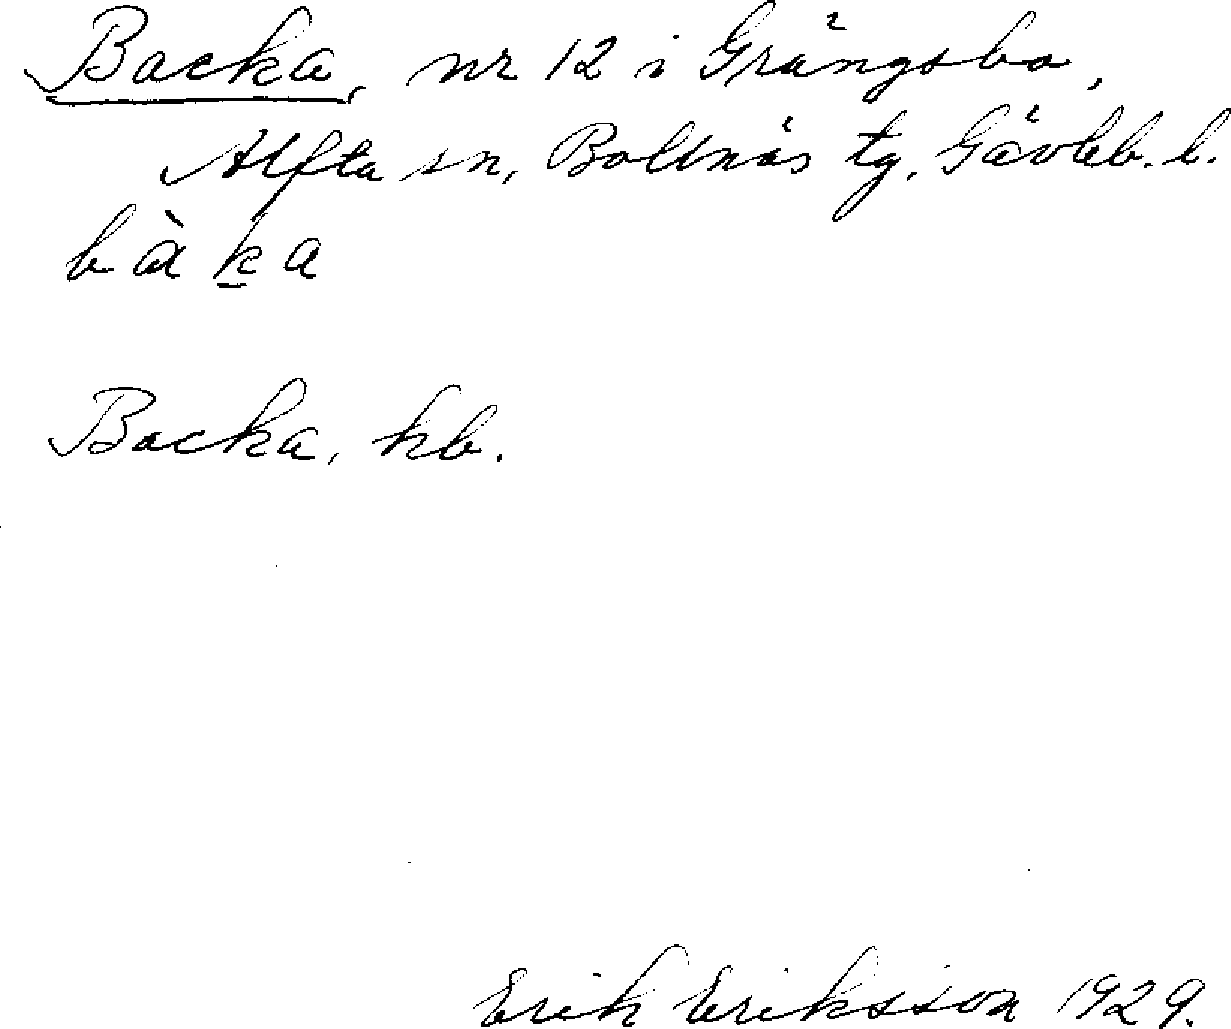 Backa, nr 12 i Grängsbo,
Alfta sn, Bollnäs tg, Gävleb. l.
bàk̲a
Backa, kb.
Erik Eriksson 1929.